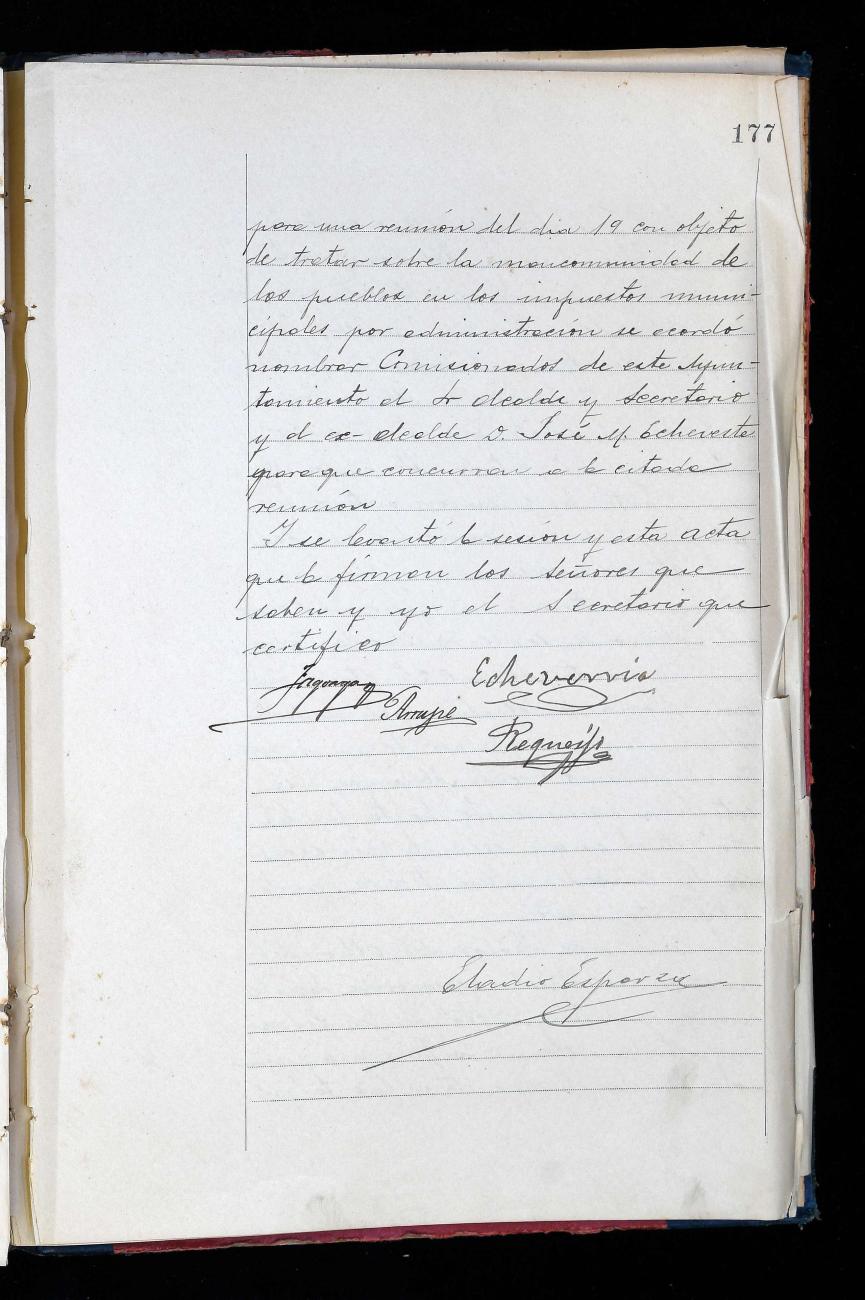 177
para una reunión del dia 19 con objeto
de tratar sobre la mancomunidad de
los pueblos en los impuestos muni-
cipales por administración se acordó
nombrar Comisionados de este Ayun-
tamiento al Sr alcalde y Secretario
y al ex-alcalde D. José M. Echeveste
para que concurran a la citada
reunión
Y se levantó la sesión y esta acta
que la firman los señores que
saben y yo el Secretario que
certifico
Echeverria
Arrupe
Requeijo
Eladio Esparza